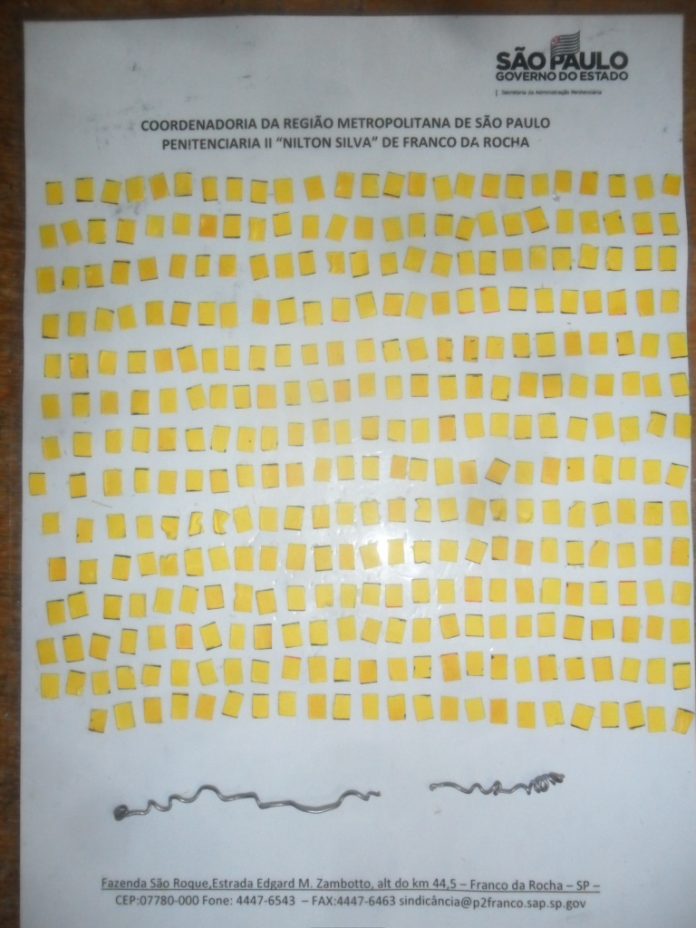 SÃO PAULO
GOVERNO DO ESTADO
Secretaria da Administração Penitenciária
COORDENADORIA DA REGIÃO METROPOLITANA DE SÃO PAULO
PENITENCIARIA II “NILTON SILVA” DE FRANCO DA ROCHA
Fazenda São Roque,Estrada Edgard M. Zambotto, alt do km 44,5 – Franco da Rocha – SP –
CEP:07780-000 Fone: 4447-6543 – FAX:4447-6463 sindicância@p2franco.sap.sp.gov